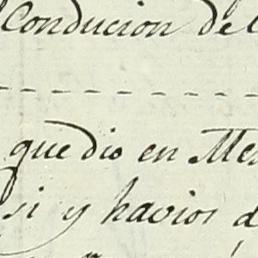 Conducion de
que dio en
si y havios